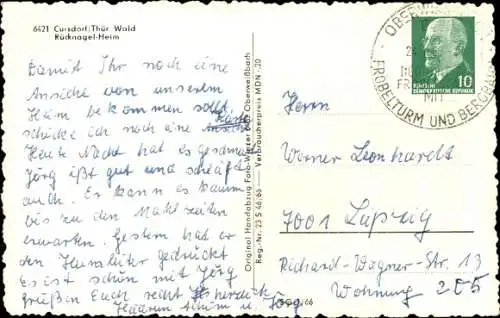 6421 Cursdorf/Thür. Wald
Rücknagel-Heim
Damit Ihr noch eine
Ansicht von unserem
Heim bekommen sollt,
schicke ich noch eine Ansicht
Karte
Heute Nacht hat es geschneit
Jörg ißt gut und schläft
auch. Er kann es kaum
bis zu den Mahlzeiten
erwarten. Gestern hat er
den Heimleiter gedrückt
Es ist schön mit Jörg
grüßen Euch recht herzlich
u. Jörg
Original Handabzug Foto-Winter 6426 Oberweißbach
Reg.-Nr. 23 S 46/66 — Verbraucherpreis MDN -,20
OBERWEISSBACH
FRÖBELTURM UND BERGBAHN
MIT
DEUTSCHE DEMOKRATISCHE REPUBLIK
10
Herrn
Werner Leonhardt
7001 Leipzig
Richard-Wagner-Str. 13
Wohnung 205